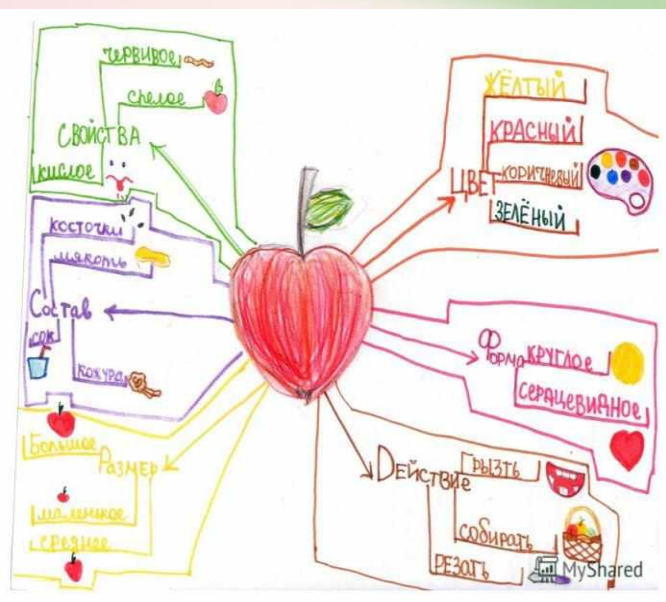 червивое
спелое
СВОЙСТВА
кислое
косточки
мякоть
Состав
сок
кожура
Большое
РАЗМЕР
маленькое
среднее
ЖЁЛТЫЙ
КРАСНЫЙ
КОРИЧНЕВЫЙ
ЦВЕТ
ЗЕЛЁНЫЙ
Форма
КРУГЛОЕ
СЕРДЦЕВИДНОЕ
ДЕЙСТВИЕ
ГРЫЗТЬ
СОБИРАТЬ
РЕЗАТЬ
MyShared